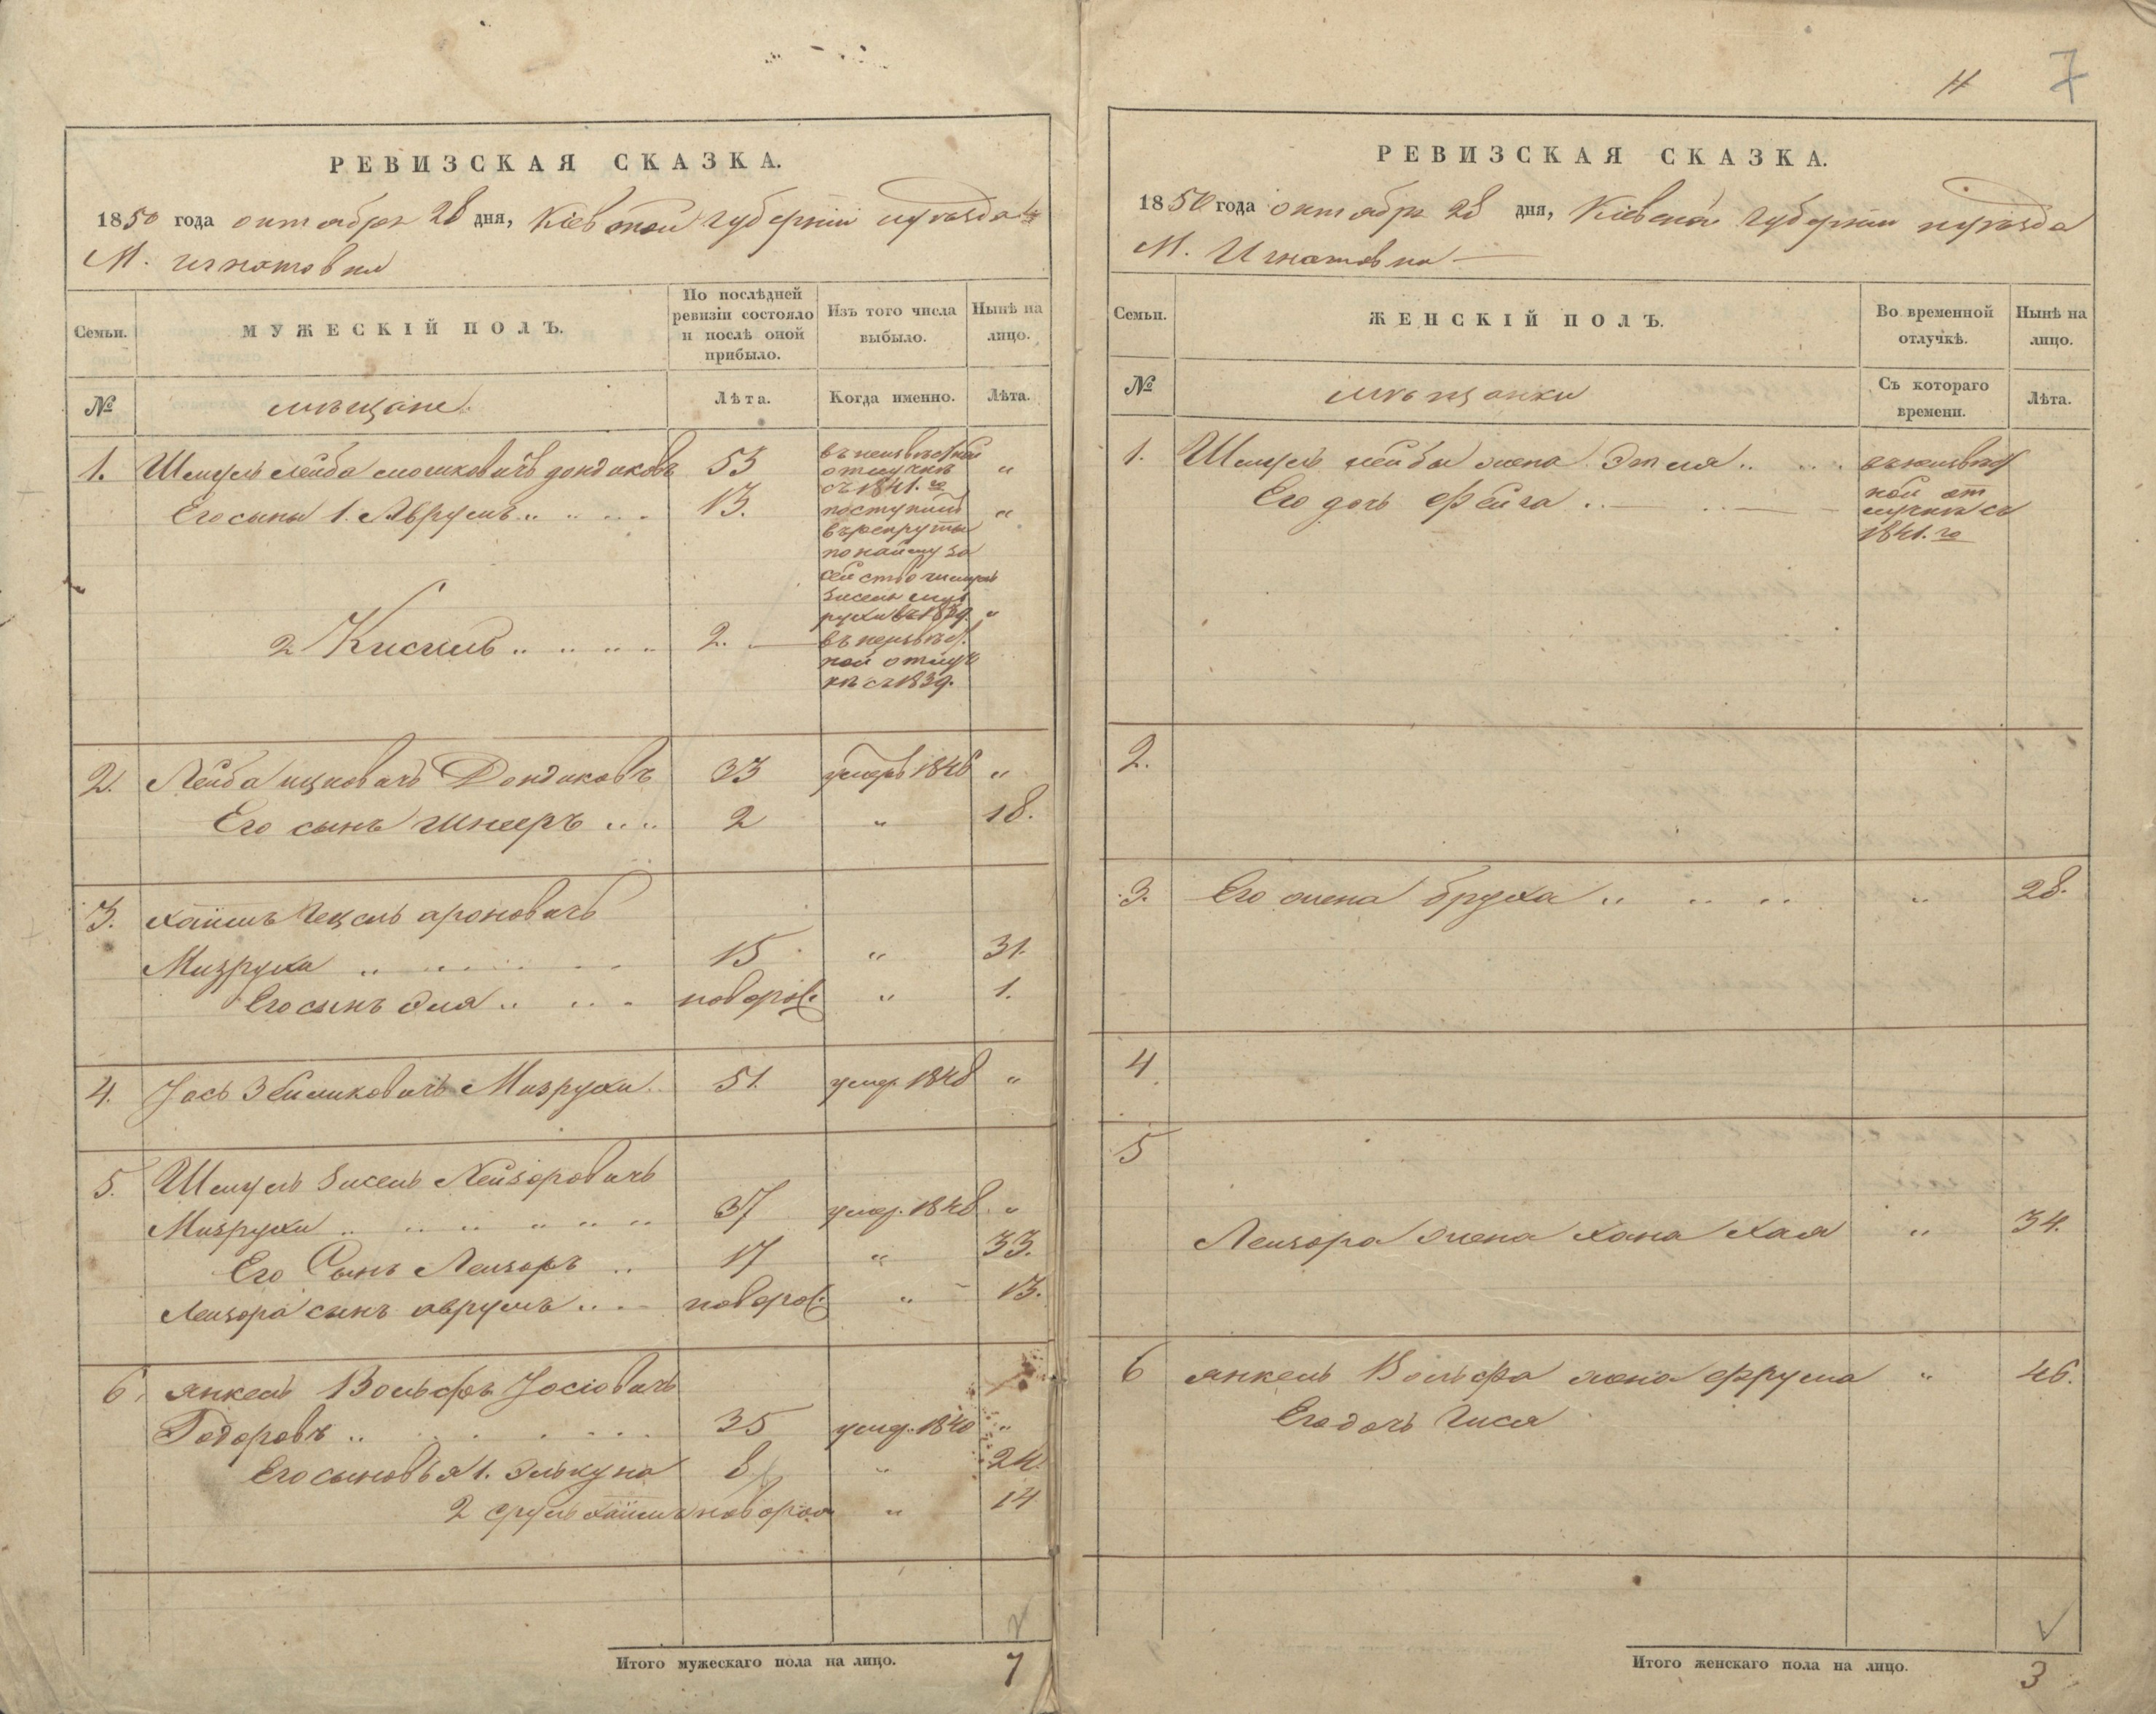 РЕВИЗСКАЯ СКАЗКА.
1850 года октября 28 дня, Кіевской губерніи уѣзда
М. Игнатовки
Семьи.
МУЖЕСКІЙ ПОЛЪ.
По послѣдней ревизіи состояло и послѣ оной прибыло.
Изъ того числа выбыло.
Нынѣ на лицо.
№
мѣщане.
Лѣта.
Когда именно.
Лѣта.
1. Шмуль Лейба мошковичъ дондиковъ 53 въ неизвѣстной „
отлучкѣ
съ 1841. го
Его сыны 1. Аврумъ „ 13. поступилъ „
въ рекруты
по найму за
сей ство шмуль
Зисель миз
рухи въ 1839. „
2 Кисиль „ 2. въ неизвѣст.
ной отлуч
кѣ съ 1839.
2. Лейба ицковичъ Дондиковъ 33 умеръ 1846 „
Его сынъ шнееръ „ 2 „ 18.
3. хаимъ Гецель ароновичъ
Мизруха „ 15 „ 31.
Его сынъ Эля „ новорож. „ 1.
4. Іось Зейликовичъ Мизрухи 51. умер. 1848 „
5. Шмуль Зисель Лейзоровичъ
Мизрухи „ 37 умер. 1848 „
Его Сынъ Лейзоръ „ 17 „ 33.
Лейзора сынъ аврумъ „ новорож. „ 13.
6. янкель Вольфъ Іосіовичъ
Тодоровъ „ 35 умер. 1840 „
Его сыновья 1. Элькуна 8 „ 24.
2 сруль хаимъ новорож „ 14
Итого мужескаго пола на лицо. 7
7
РЕВИЗСКАЯ СКАЗКА.
1850 года октября 28 дня, Кіевской губерніи уѣзда
М. Игнатовка
Семьи.
ЖЕНСКІЙ ПОЛЪ.
Во временной отлучкѣ.
Нынѣ на лицо.
№
мѣщанки
Съ котораго времени.
Лѣта.
1. Шмуль лейбы жена Этля „ въ неизвѣст
Его дочь Фейга „ ной от
лучкѣ съ
1841. го
2.
3. Его жена бруха „ „ 28.
4
5
Лейзора жена хана хая „ 34.
6 янкель Вольфа жена фрума „ 46.
Его дочь Гися
Итого женскаго пола на лицо. 3